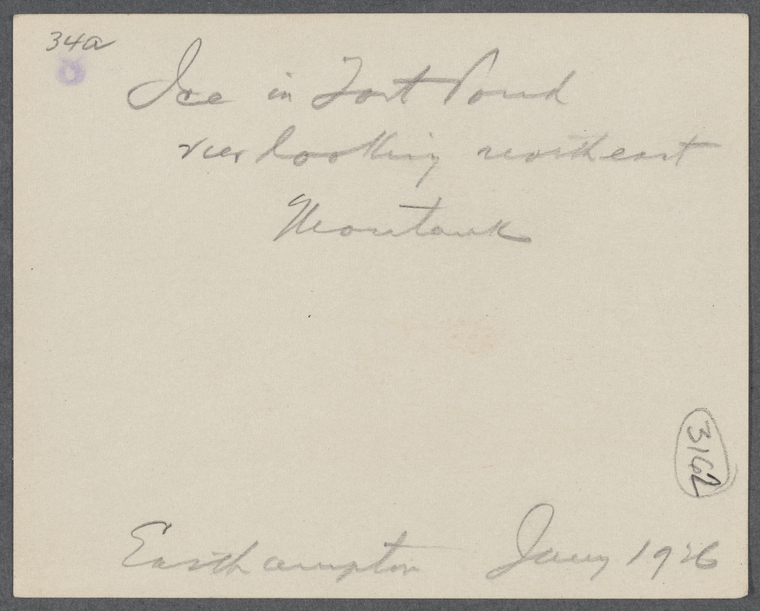 34a
Ice in Fort Pond
view looking northeast
Montauk
3162
Easthampton Jany 1926